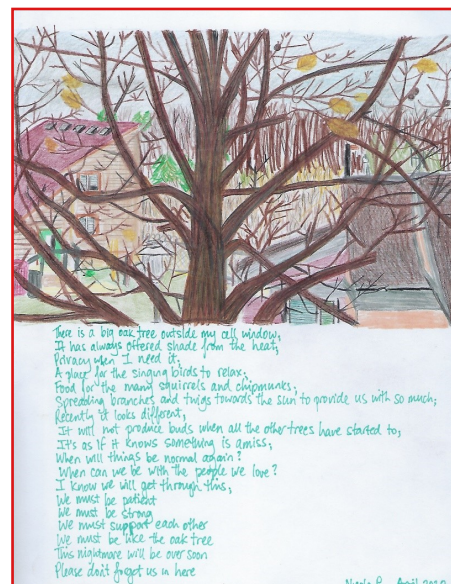 There is a big oak tree outside my cell window;
It has always offered shade from the heat;
Privacy when I need it;
A place for the singing birds to relax;
Food for the many squirrels and chipmunks;
Spreading branches and twigs towards the sun to provide us with so much;
Recently it looks different;
It will not produce buds when all the other trees have started to;
It's as if it knows something is amiss;
When will things be normal again?
When can we be with the people we love?
I know we will get through this;
We must be patient
We must be strong
We must support each other
We must be like the oak tree
This nightmare will be over soon
Please don't forget us in here
April 2020